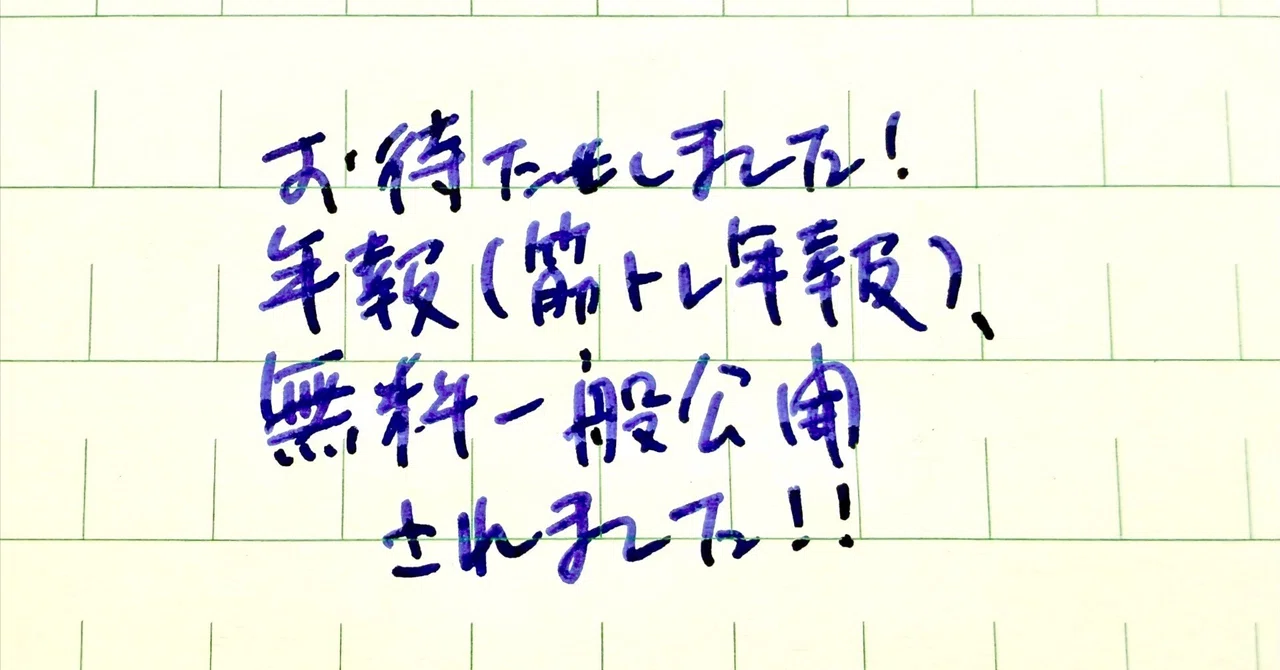 お待たせしました!
年報(筋トレ年報)、
無料一般公開
されました!!